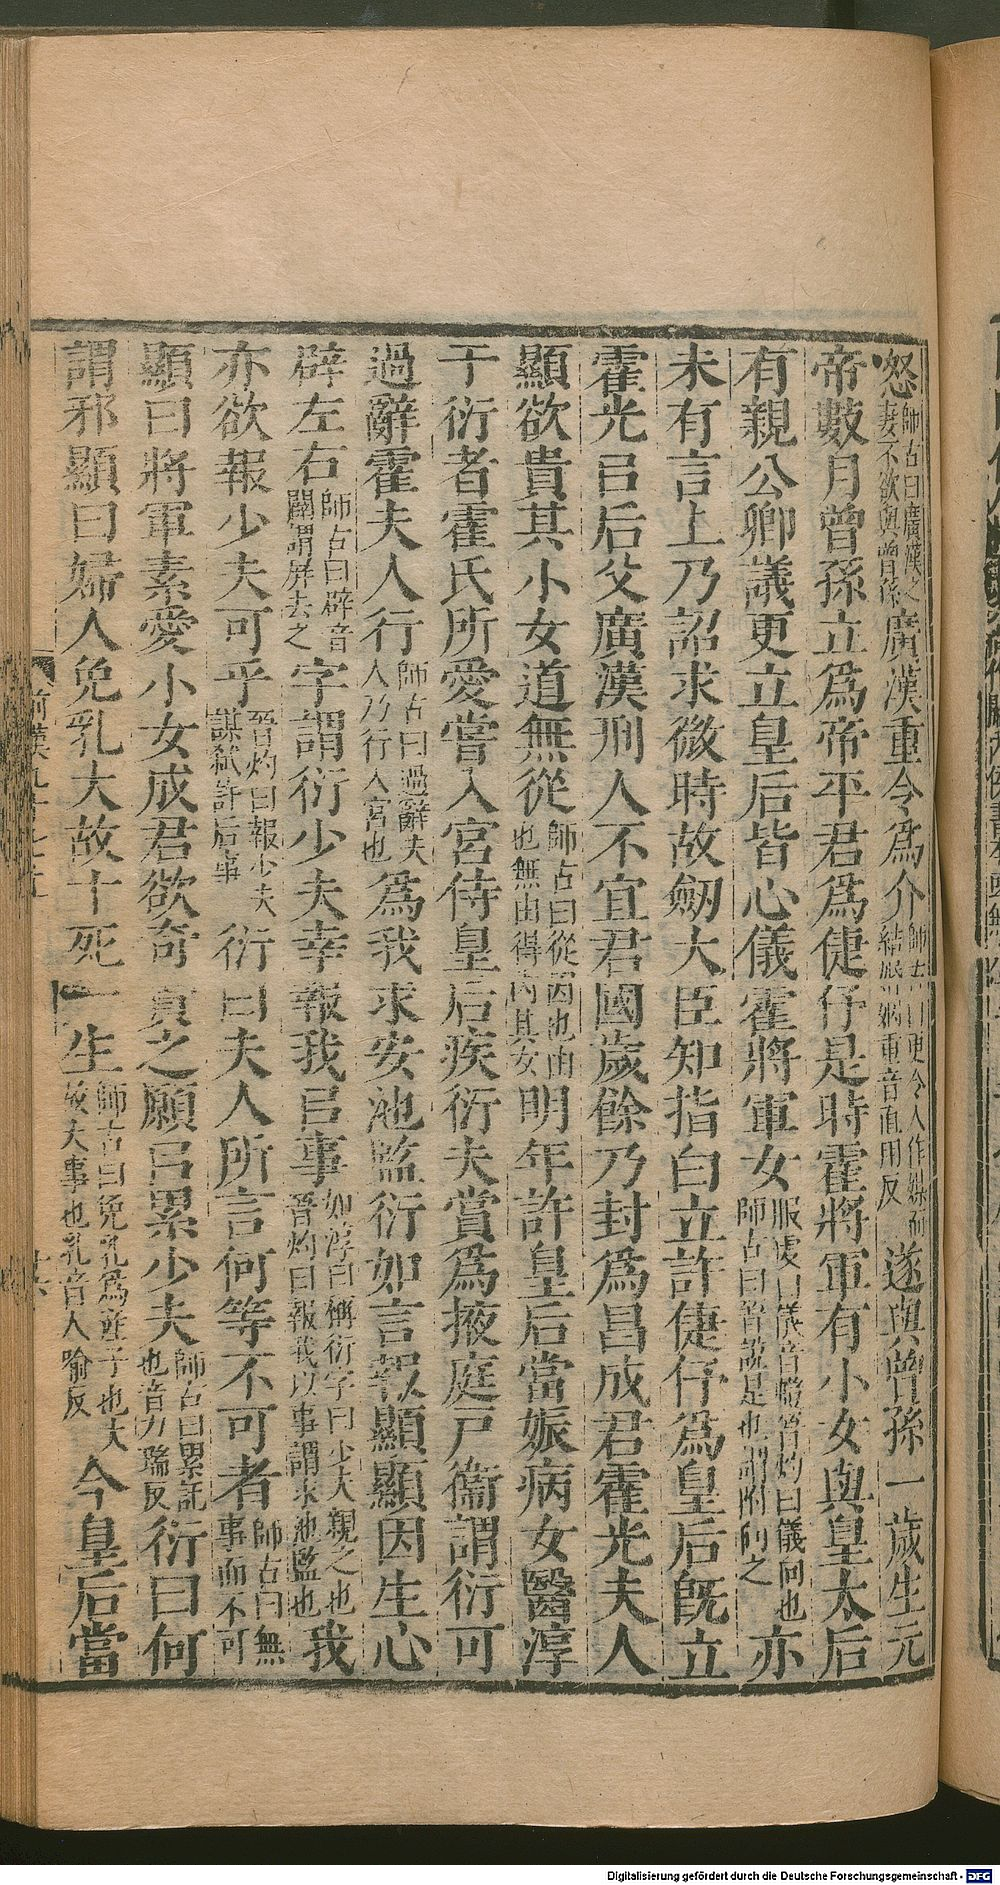 怒師古曰廣漢之妻不欲與曾孫廣漢重令爲介師古曰更令人作媒而結婚姻重音直用反遂與曾孫一歲生元
帝數月曾孫立爲帝平君爲倢伃是時霍將軍有小女與皇太后
有親公卿議更立皇后皆心儀霍將軍女服虔曰儀音螘晉灼曰儀向也師古曰晉說是也謂附向之亦
未有言上乃詔求微時故劒大臣知指白立許倢伃爲皇后旣立
霍光㠯后父廣漢刑人不宜君國歲餘乃封爲昌成君霍光夫人
顯欲貴其小女道無從師古曰從因也由也無由得內其女明年許皇后當娠病女醫淳
于衍者霍氏所愛嘗入宮侍皇后疾衍夫賞爲掖庭戸衞謂衍可
過辭霍夫人行師古曰過辭夫人乃行入宮也爲我求安池監衍如言報顯顯因生心
辟左右師古曰辟音闢謂屏去之字謂衍少夫幸報我㠯事如淳曰稱衍字曰少夫親之也晉灼曰報我以事謂求池監也我
亦欲報少夫可乎晉灼曰報少夫謀弑許后事衍曰夫人所言何等不可者師古曰無事而不可
顯曰將軍素愛小女成君欲奇貴之願㠯累少夫師古曰累託也音力瑞反衍曰何
謂邪顯曰婦人免乳大故十死一生師古曰免乳爲產子也大故大事也乳音人喻反今皇后當
Digitalisierung gefördert durch die Deutsche Forschungsgemeinschaft - DFG